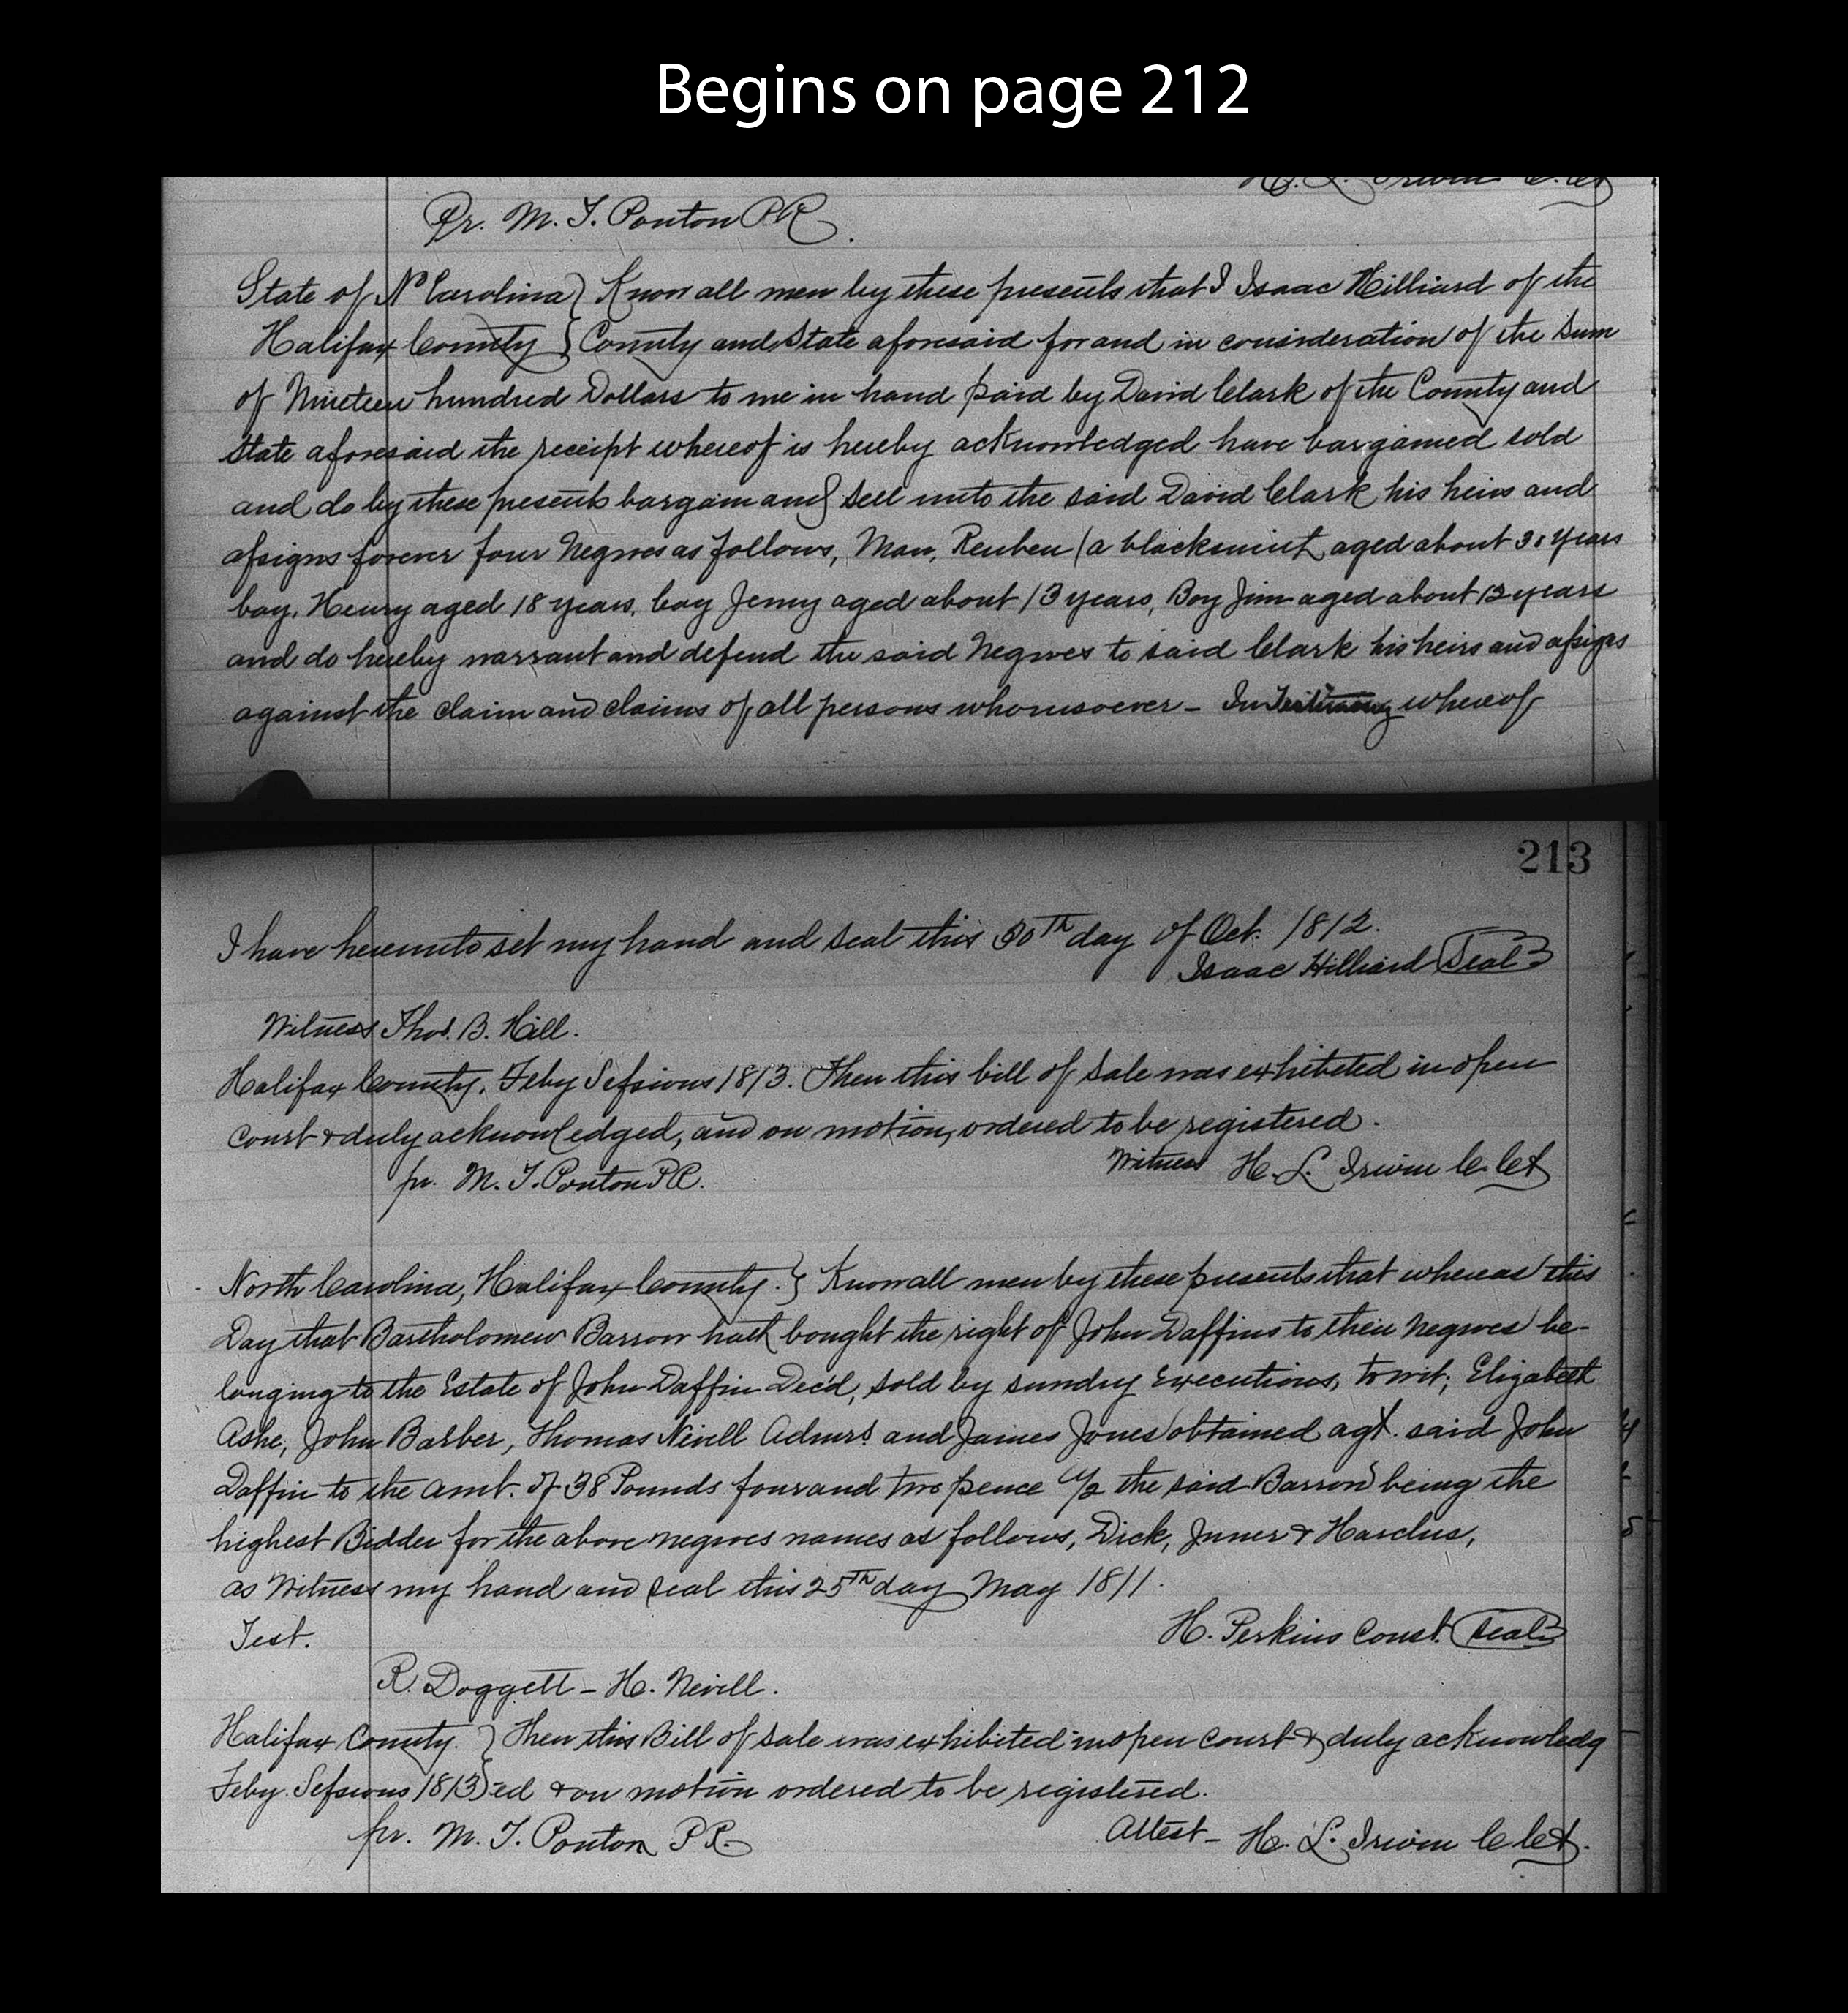 Begins on page 212
Pr. M. T. Ponton P.R.
State of No Carolina } Know all men by these presents that I Isaac Hilliard of the
Halifax County } County and State aforesaid for and in consideration of the sum
of Nineteen hundred Dollars to me in hand paid by David Clark of the County and
State aforesaid the receipt whereof is hereby acknowledged have bargained sold
and do by these presents bargain and sell unto the said David Clark his heirs and
assigns forever four Negroes as follows, Man, Reuben (a blacksmith aged about years
boy, Henry aged 18 years, boy Jemy aged about 13 years, Boy Jim aged about 12 years
and do hereby warrant and defend the said Negroes to said Clark his heirs and assigns
against the claim and claims of all persons whomsoever - In Testimony whereof
213
I have hereunto set my hand and seal this 30th day of Oct. 1812.
Isaac Hilliard Seal
Witness Thos. B. Hill.
Halifax County, Feby Sessions 1813. Then this bill of sale was exhibited in open
Court & duly acknowledged, and on motion, ordered to be registered.
Witness H. L. Irwin C. Ct
pr. M. T. Ponton P.R.
North Carolina, Halifax County. } Know all men by these presents that whereas this
Day that Bartholomew Barrow hath bought the right of John Daffins to their Negroes be-
longing to the Estate of John Daffin Dec'd, sold by sundry Executions, to wit; Elizabeth
Ashe, John Barber, Thomas Nevill Admrs. and James Jones obtained agt. said John
Daffin to the amt. of 38 Pounds four and two pence 1/2 the said Barrow being the
highest Bidder for the above negroes names as follows, Dick, &
as Witness my hand and seal this 25th day May 1811.
Test. H. Perkins Const. Seal
R. Doggett - H. Nevill.
Halifax County. } Then this Bill of sale was exhibited in open court & duly acknowledg
Feby. Sessions 1813 } ed & on motion ordered to be registered.
pr. M. T. Ponton P.R. Attest - H. L. Irwin C Ct.